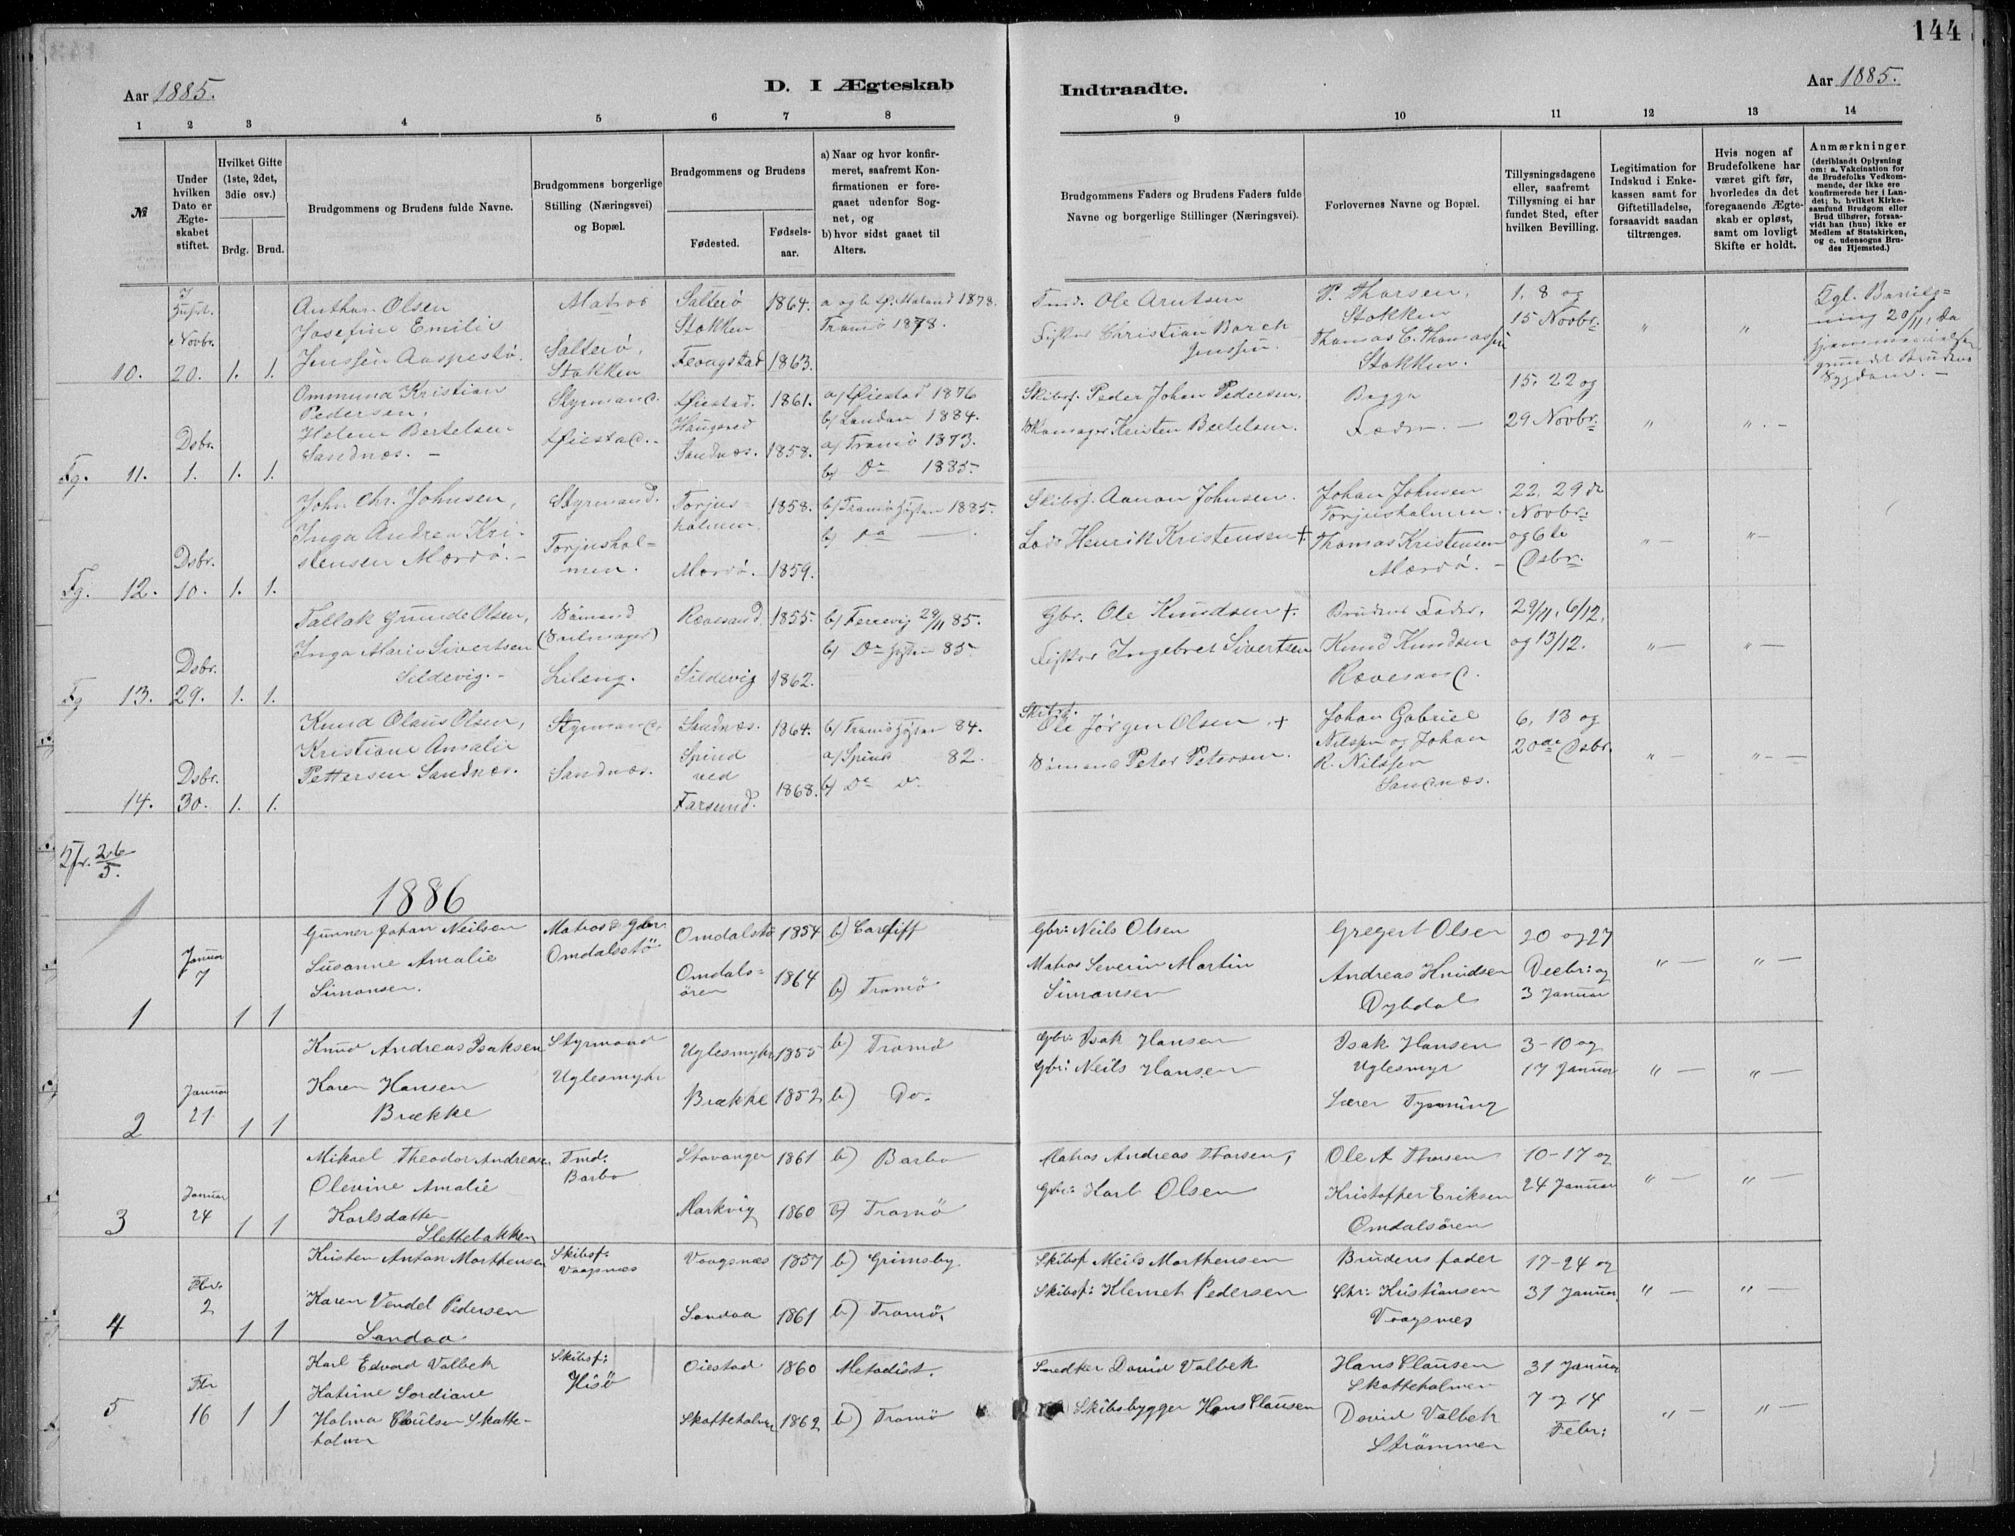 144
Aar 1885.
D. I Ægteskab
Indtraadte.
Aar 1885.
1 2 3 4 5 6 7 8 9 10 11 12 13 14
№
Under
hvilken
Dato er
Ægte-
skabet
stiftet.
Hvilket Gifte
(1ste, 2det,
3die osv.)
Brdg. Brud.
Brudgommens og Brudens fulde Navne.
Brudgommens borgerlige
Stilling (Næringsvei)
og Bopæl.
Brudgommens og Brudens
Fødested.
Fødsels-
aar.
a) Naar og hvor konfir-
meret, saafremt Kon-
firmationen er fore-
gaaet udenfor Sog-
net, og
b) hvor sidst gaaet til
Alters.
Brudgommens Faders og Brudens Faders fulde
Navne og borgerlige Stillinger (Næringsvei).
Forlovernes Navne og Bopæl.
Tillysningsdagene
eller, saafremt
Tillysning ei har
fundet Sted, efter
hvilken Bevilling.
Legitimation for
Indskud i Enke-
kassen samt for
Giftetilladelse,
forsaavidt saadan
tiltrænges.
Hvis nogen af
Brudefolkene har
været gift før,
hvorledes da det
foregaaende Ægte-
skab er opløst,
samt om lovligt
Skifte er holdt.
Anmærkninger
(deriblandt Oplysning
om: a. Vakcination for
de Brudefolks Vedkom-
mende, der ikke ere
konfirmerede her i Lan-
det; b. hvilket Kirke-
samfund Brudgom eller
Brud tilhører, forsaa-
vidt han (hun) ikke er
Medlem af Statskirken,
og c. udensogns Bru-
des Hjemsted.)
10. Novbr. 20. 1. 1.
Anthon Olsen
Josefine Emilie
Jenssen Aaspestø.
Matros
Salterø,
Stokken
Salterø
Stokken 1864.
Fevagstad 1863.
1878.
Tromø 1878.
Tmd. Ole Arntsen
Fisker Christian Borch
Jenssen.
P. Thorsen,
Stokken
Thomas C. Thomassen
Stokken.
1. 8 og
15 Novbr.
" "
Fg. 11. Dsbr. 1. 1. 1.
Ommund Kristian
Pedersen,
Helene Bertelsen
Sandnæs. –
Styrmand.
Øiestad. –
Øiestad. 1861.
Sandnæs. 1858.
a) Øiestad 1876
b) London 1884.
a) Tromø 1873.
b) Do 1885.
Skibsf. Peder Johan Pedersen.
Kristen Bertelsen.
Begge
Fædre. –
15. 22 og
29 Novbr.
" ". –
Fg. 12. Dsbr. 10. 1. 1.
John Chr. Johnsen,
Inga Andrea Kri-
stensen Mærdø. –
Styrmand.
Torjushol-
men.
Torjus-
holmen. 1858.
Mærdø. 1859.
b) Tromø 1885.
b) do –
Skibsf. Aanon Johnsen.
Lods Henrik Kristensen +
Johan Johnsen
Torjusholmen. –
Thomas Kristensen
Mærdø. –
22. 29 de
Novbr.
og 6te
Dsbr.
" – " –
Fg 13. Dsbr. 29. 1. 1.
Tallak Gunde Olsen,
Inga Marie Sivertsen
Sildevig. –
Sømand
(Seilmager)
Ravesand. 1855.
Sildevig 1862.
b) Færvig 29/11 85.
b) Do 85.
Gbr. Ole Knudsen +.
Fisker Ingebret Sivertsen
Brudens Fader,
Knud Knudsen
Ravesand.
29/11, 6/12,
og 13/12.
" – " –
14. Dsbr. 30. 1. 1.
Knud Olaus Olsen,
Kristiane Amalie
Pettersen Sandnæs.
Styrmand.
Sandnæs.
Sandnæs. 1864.
Spind
ved
Farsund. 1868.
b) Tromø 84.
a) Spind 82.
b) Do
Skibsf.
Ole Jørgen Olsen +
Sømand Peter Petersen.
Johan Gabriel
Nilssen og Johan
R. Nilssen
Sandnæs.
6, 13 og
20de Dsbr.
" – " –
26/5.
1886
1 Januar 7 1 1
Gunner Johan Neilsen
Susanne Amalie
Simonsen.
Matros & Gbr
Omdalsstø
Omdalstø 1854
Omdals-
ören 1864
b) Cardiff
b) Tromø
Gbr: Neils Olsen
Matros Severin Martin
Simonsen
Gregert Olsen
Andreas Knudsen
Dybdal
20 og 27
Decbr: og
3 Januar
" – " –
2 Januar 21 1 1
Knud Andreas Isaksen
Karen Hansen
Brække
Styrmand
Uglesmyhr
Uglesmyhr 1855
Brække 1852
b) Tromø
b) Do.
Gbr: Isak Hansen
Gbr: Neils Hansen
Isak Hansen
Uglesmyr
Lærer Tysning
3-10 og
17 Januar
" – " –
3 Januar 24 1 1
Mikael Theodor Andreasen
Olevine Amalie
Karlsdatter
Slettebakken
Tmd:
Barbo
Stavanger 1861
Markvig 1860
b) Barbo
b) Tromø
Matros Andreas Thorsen,
Gbr: Karl Olsen
Ole A Thorsen
Kristoffer Eriksen
Omdalsören
10-17 og
24 Januar
" – " –
4 Fbr. 2 1 1
Kristen Anton Morthensen
Karen Vendel Pedersen
Sandaa
Skibsf:
Vaagsnæs
Vaagsnæs 1857
Sandaa 1861
b) Grimsby.
b) Tromø.
Skibsf Neils Morthensen
Skibsf: Klemet Pedersen
Brudens fader
Chr: Kristiansen
Vaagsnæs
17-24 og
31 Januar.
" – " –
5 Fbr 16 1 1
Karl Edvard Valbek
Katrine Lordiane
Holma Claulsen Skotte-
holmen
Skibsf:
Hisö
Oiestad 1860
Skotteholmen 1862
Metodist.
b) Tromø
Smedker David Valbek
Skibsbygger Hans Clausen
Hans Clausen
Skotteholmen
David Valbek
Strömmen
31 Januar
7 og 14
Febr:
" – " –